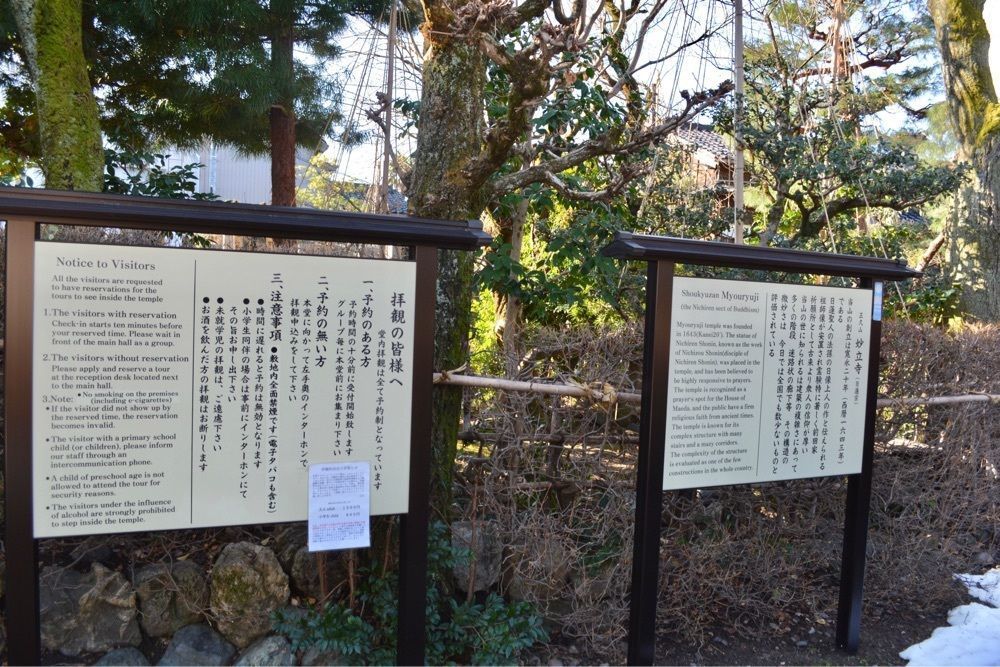 Notice to Visitors
All the visitors are requested
to have reservations for the
tours to see inside the temple
1.The visitors with reservation
Check-in starts ten minutes before
your reserved time. Please wait in
front of the main hall as a group.
2.The visitors without reservation
Please apply and reserve a tour
at the reception desk located next
to the main hall.
3.Note: • No smoking on the premises
(including e-cigarettes)
• If the visitor did not show up by
his reserved time, the reservation
becomes invalid.
• The visitor with a primary school
child (or children), please inform
our staff through an
intercommunication phone.
• A child of preschool age is not
allowed to attend the tour for
security reasons.
• The visitors under the influence
of alcohol are strongly prohibited
to step inside the temple.
拝観の皆様へ
堂内拝観は全て予約制となっています
一、予約のある方
予約時間の十分前に受付開始致します
グループ毎に本堂前にお集まり下さい
二、予約の無い方
本堂に向かって左手奥のインターホンで
拝観申込みをして下さい
三、注意事項 ●敷地内全面禁煙です(電子タバコも含む)
●時間に遅れると予約は無効となります
●小学生同伴の場合は事前にインターホンにて
その旨お申し出下さい
●未就学児の拝観は、ご遠慮下さい
●お酒を飲んだ方の拝観はお断りします
Shoukyuzan Myouryuji
(the Nichiren sect of Buddhism)
Myouryuji temple was founded
in 1643(Kanei20). The statue of
Nichiren Shonin, known as the work
of Nichizou Shonin(disciple of
Nichiren Shonin), was placed in the
temple, and has been believed to
be highly responsive to prayers.
The temple is recognized as a
prayer's spot for the House of
Maeda, and the public have a firm
religious faith from ancient times.
The temple is known for its
complex structure with many
stairs and a many corridors.
The complexity of the structure
is evaluated as one of the few
constructions in the whole country.
正久山 妙立寺
当山の創立は寛永二十年(西暦一六四三年)
である
日蓮聖人の法孫の日像上人の作と伝えられる
祖師像が安置され霊験特に著しく前田家
祈願所として古来より衆人の信仰が厚い
当山の世に知られるは建築の複雑さにあって
多くの階段 迷路状の廊下等 その構造の
微妙さは 今日では全国でも数少ないものと
評価されている